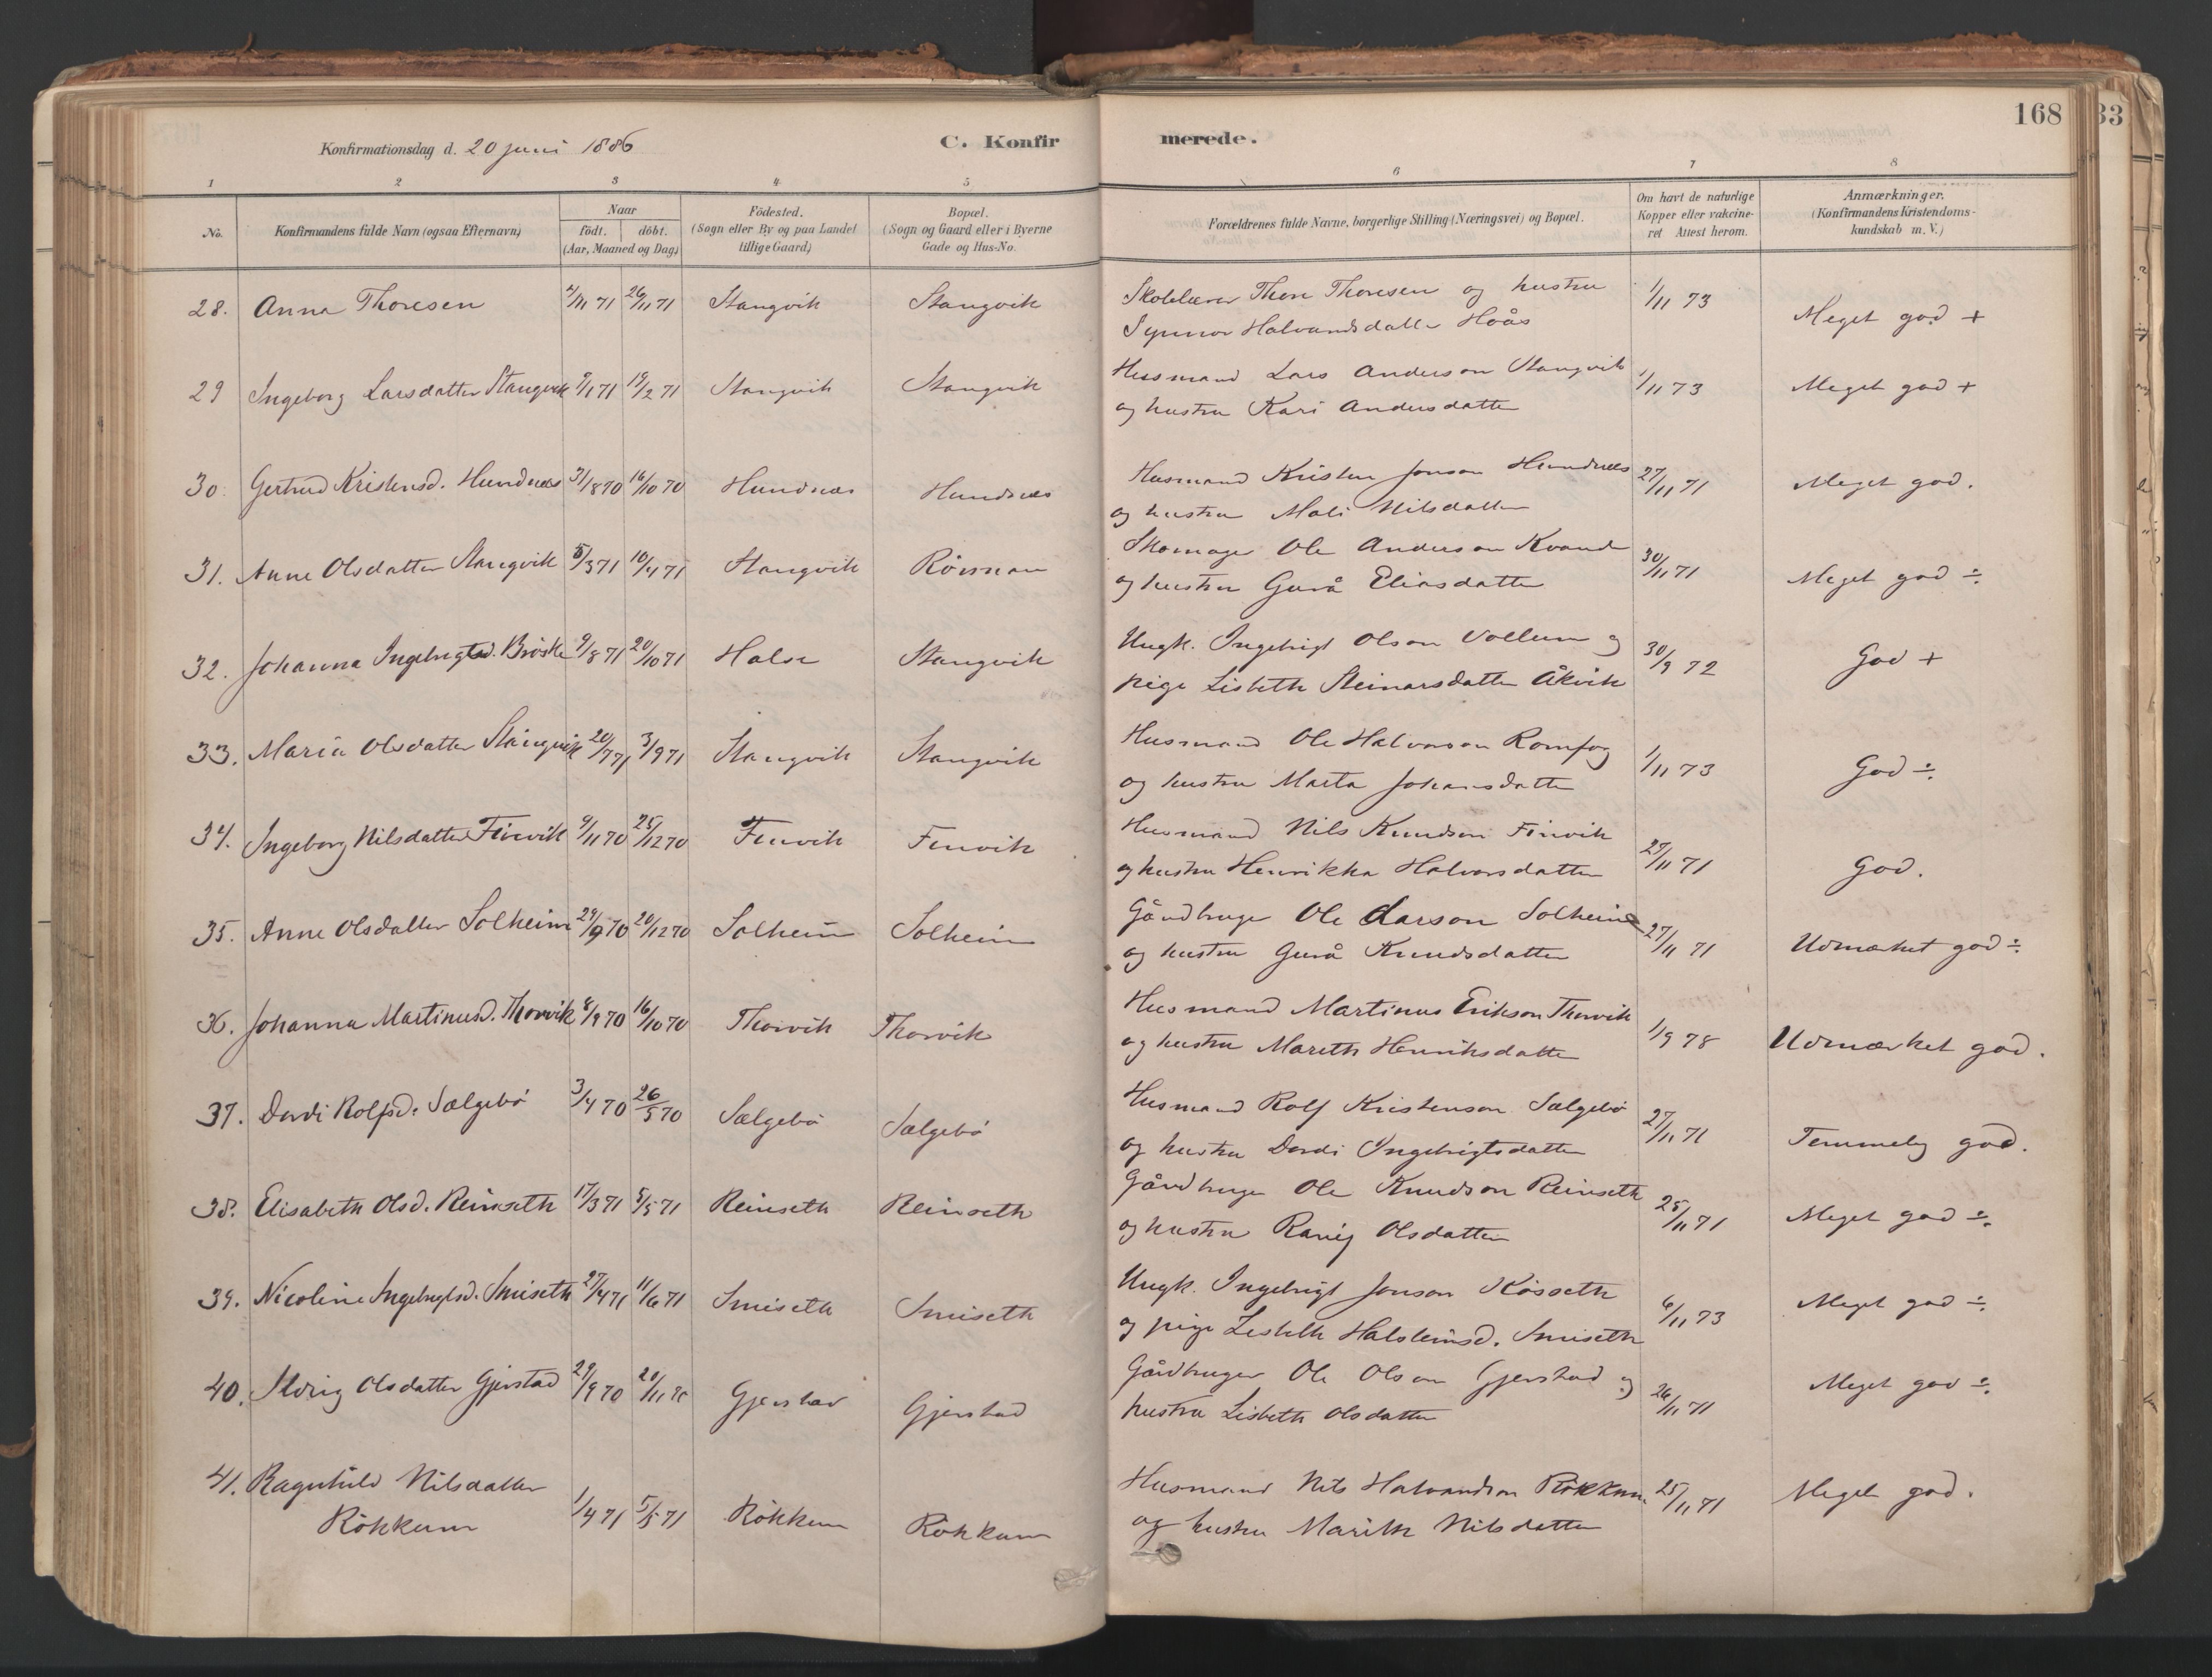 168
33
Konfirmationsdag d. 20 juni 1886
C. Konfirmerede.
1 2 3 4 5 6 7 8
No.
Konfirmandens fulde Navn (ogsaa Efternavn)
Naar
födt. döbt.
(Aar, Maaned og Dag)
Födested.
(Sogn eller By og paa Landet
tillige Gaard)
Bopæl.
(Sogn og Gaard eller i Byerne
Gade og Hus-No.
Forældrenes fulde Navne, borgerlige Stilling (Næringsvei) og Bopæl.
Om havt de naturlige
Kopper eller vakcine-
ret Attest herom.
Anmærkninger.
(Konfirmandens Kristendoms-
kundskab m. V.)
28. Anna Thoresen 26/11 71 Stangvik Stangvik
Skolelærer Thore Thoresen og hustru
Synnov Halvardsdatter Hoås
1/11 73 Meget god +
29 Ingeborg Larsdatter Stangvik 9/1 71 19/2 71 Stangvik Stangvik
Husmand Lars Anderson Stangvik
og hustru Kari Andersdatter
1/11 73 Meget god +
30. Gertrud Kristensd. Hundnes 31/8 70 16/10 70 Hundnæs Hundnæs
Husmand Kristen Jonson Hundnæs
og hustru Mali Nilsdatter
27/11 71 Meget god.
31. Anne Olsdatter Stangvik 5/3 71 10/4 71 Stangvik
Skomager Ole Anderson Kvande
og hustru Gurå Eliasdatter
30/11 71 Meget god ÷
32. Johanna Ingebrigtsd. Bröske 9/8 71 20/10 71 Halse Stangvik
Ungk. Ingebrigt Olson Vollum og
pige Lisbeth Steinarsdatter Åkvik
30/9 72 God +
33. Maria Olsdatter Stangvik 20/7 71 3/9 71 Stangvik Stangvik
Husmand Ole Halvorson Romfog
og hustru Marta Johansdatter
1/11 73 God ÷
34. Ingeborg Nilsdatter Finvik 9/11 70 25/12 70 Finvik Finvik
Husmand Nils Knudson Finvik
og hustru Henrikka Halvorsdatter
27/11 71 God.
35. Anne Olsdatter Solheim 29/9 70 20/12 70 Solheim Solheim
Gårdbruger Ole Larson Solheim
og hustru Gurå Knudsdatter
27/11 71 Udmærket god ÷
36. Johanna Martinusd. Thorvik 8/9 70 16/10 70 Thorvik Thorvik
Husmand Martinus Erikson Thorvik
og hustru Mareth Henriksdatter
1/9 78 Udmærket god.
37. Dordi Rolfsd. Sælgebö 3/4 70 26/5 70 Sælgebö Sælgebö
Husmand Rolf Kristenson Sælgebö
og hustru Dordi Ingebrigtsdatter
27/11 71 Temmelig god.
38. Elisabeth Olsd. Reinseth 17/3 71 5/5 71 Reinseth Reinseth
Gårdbruger Ole Knudson Reinseth
og hustru Ranig Olsdatter
25/11 71 Meget god ÷
39. Nicoline Ingebrigtsd. Smiseth 27/4 71 11/6 71 Smiseth Smiseth
Ungk. Ingebrigt Jonson Kösseth
og pige Lisbeth Halsteinsd. Smiseth
6/11 73 Meget god ÷
40. Sivrig Olsdatter Gjerstad 29/9 70 20/11 70 Gjerstad Gjerstad
Gårdbruger Ole Olson Gjerstad og
hustru Lisbeth Olsdatter
26/11 71 Meget god ÷
41. Ragnhild Nilsdatter
Rökkum 1/4 71 5/5 71 Rökkum Rökkum
Husmand Nils Halvardson Rökkum
og hustru Marith Nilsdatter
25/11 71 Meget god.